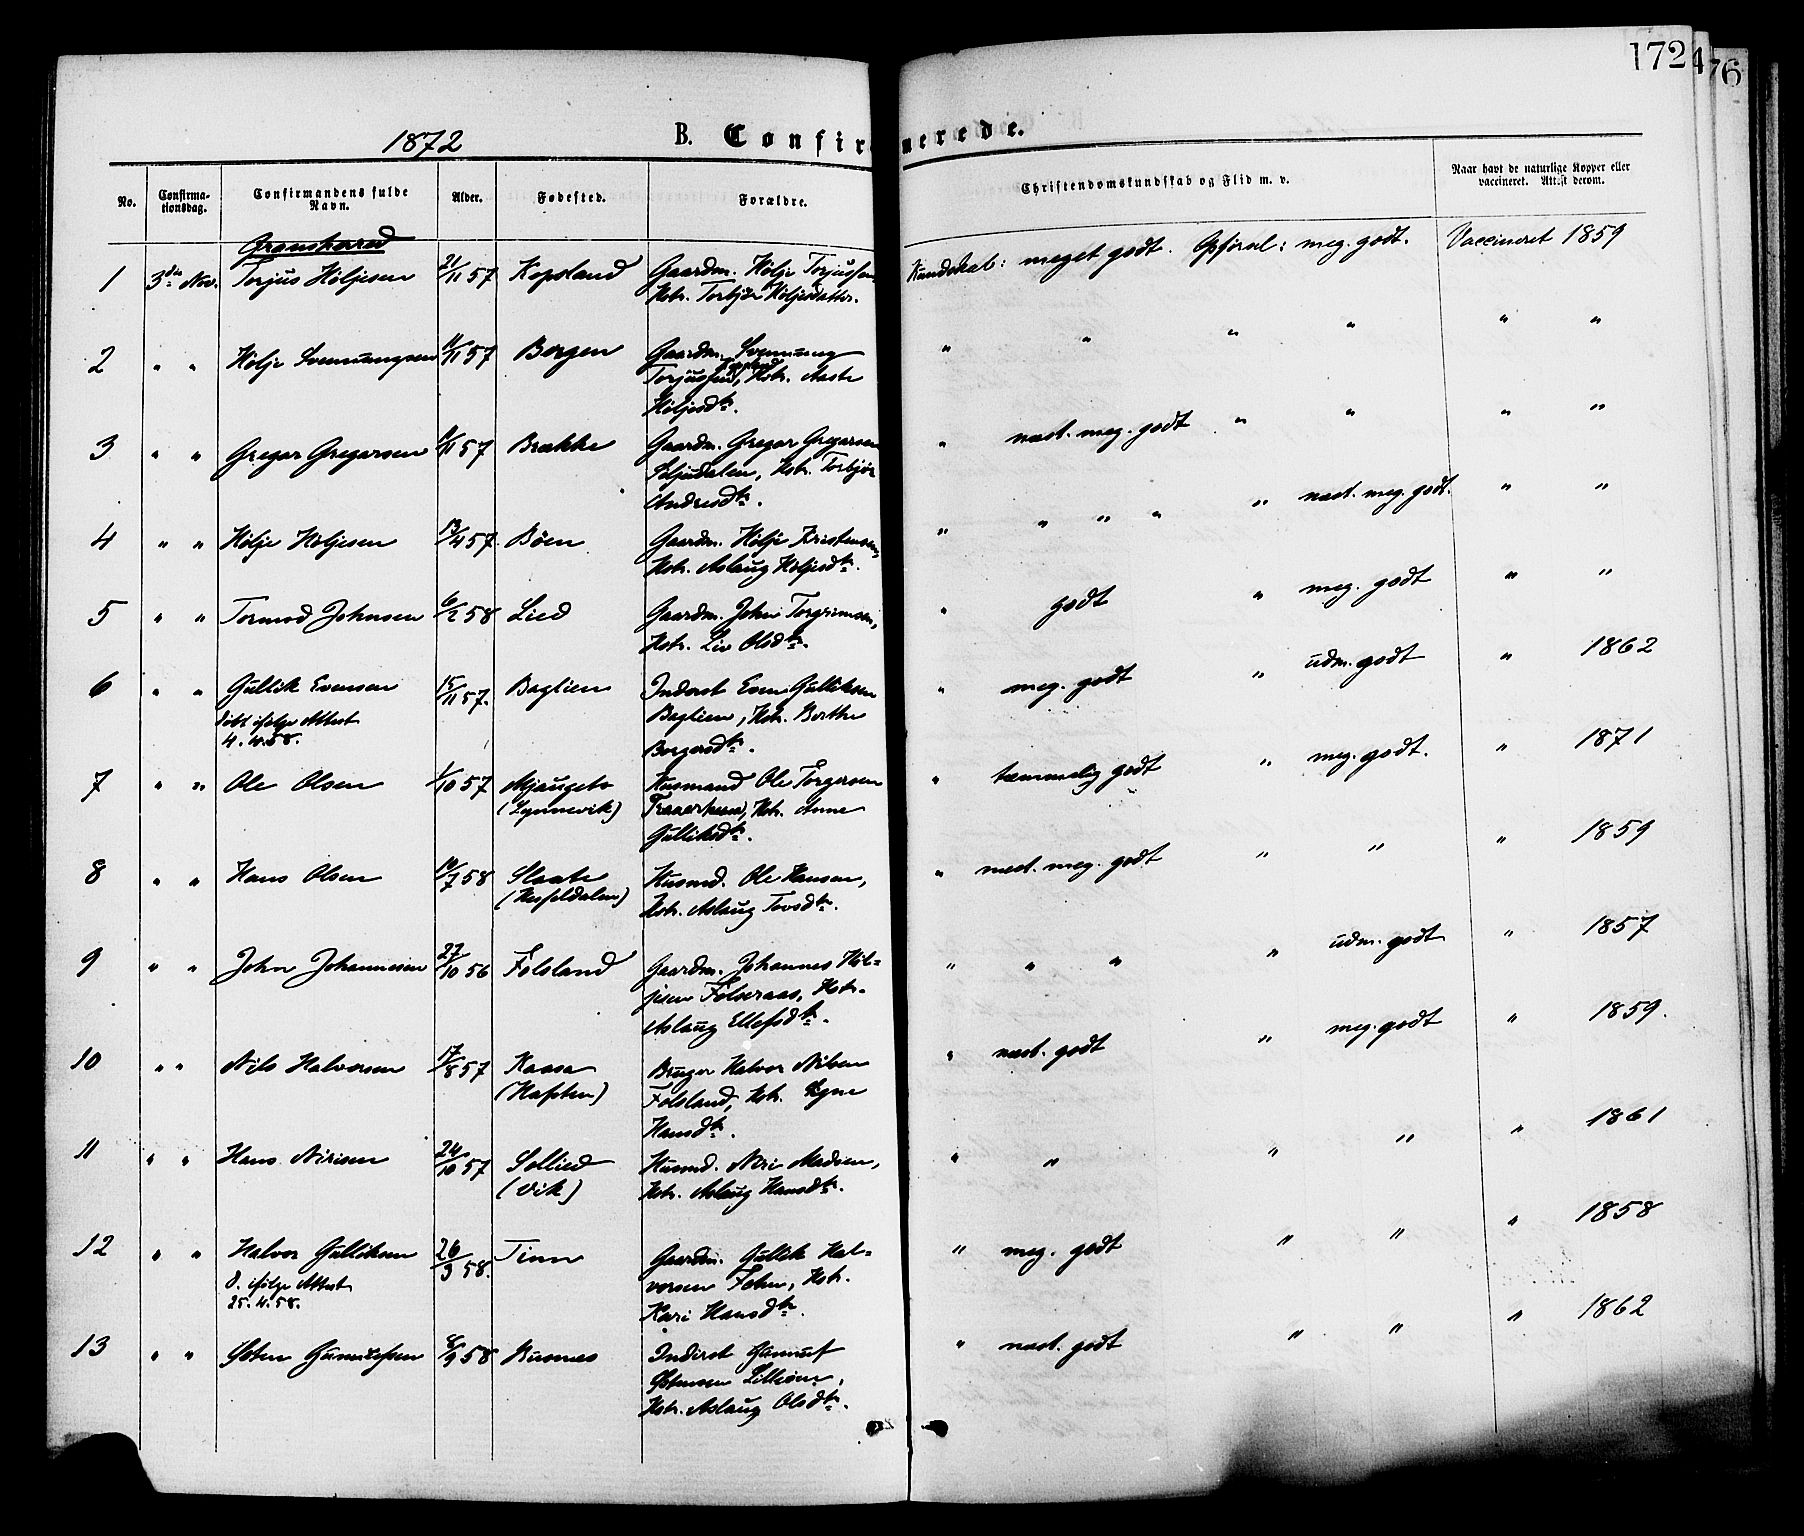 172
4
76
1872
B. Confirmerede.
No.
Confirma-
tionsdag.
Confirmandens fulde
Navn.
Alder.
Fødested.
Forældre.
Christendomskundskab og Flid m. v.
Naar havt de naturlige Kopper eller
vaccineret. Attest derom.
Gransherred
1 3die Nov. Torjus Høljesen 21/11 57 Kopsland Gaardm. Hølje Torjussen
Kstr. Torbjør Høljesdatter.
Kundskab: meget godt. Opførsel: meg. godt. Vaccineret 1859
2 " " Hølje Svennungsen 11/11 57 Bergen Gaardm. Svennung
Torjussen, Kstr. Aaste
Høljesdtr.
" " " " " "
3 " " Gregar Gregarsen 57 Brække Gaardm. Gregar Gregarsen
Kstr. Torbjør
Andresdtr.
" næst. meg. godt " " " "
4 " " Hølje Høljesen 13/4 57. Bøen Gaardm. Hølje Kristensen,
Kstr. Aslaug Høljesdtr.
" " " " " næst. meg. godt. " "
5 " " Tormod Johnsen 6/2 58 Lied Gaardm. John Torgrimsen,
Kstr. Liv Olsdtr.
" godt " meg. godt " "
6 " " Gullik Evensen 15/11 57. Baglien Inderst Even Gulliksen
døbt ifølge Attest
4.4.58.
Baglien, Kstr. Berthe
Borgersdtr.
" meg. godt " udm. godt " 1862
7 " " Ole Olsen 1/10 57 Mjaugeto
(Lynnevik)
Husmand Ole Torgersen
Kstr. Anne
Gulliksdtr.
" temmelig godt " meg. godt. " 1871
8 " " Hans Olsen 58 Slaate
Husmd. Ole Hansen,
Kstr. Aslaug Tovsdtr.
" næst. meg. godt " " " 1859
9 " " John Johannesen 27/10 56 Følsland Gaardm. Johannes Høl-
jesen Følseraas, Kstr.
Aslaug Ellefsdtr.
" " " " udm. godt " 1857
10 " " Nils Halvorsen 17/8 57 Kaasa
(Haften)
Bruger Halvor Nilsen
Følsland, Kstr. Signe
Hansdtr.
" næst. godt " meg. godt " 1859.
11 " " Hans Nirisen 24/10 57 Sollied
(Vik)
Husmd. Niri Madsen,
Kstr. Aslaug Hansdtr.
" " " " " 1861
12 " " Halvor Gulliksen 26/3 58. Tinn Gaardm. Gullik Hal-
d. ifølge Attest
25.4.58.
vorsen Kstr.
Kari Hansdtr.
" meg. godt " " " 1858
13 " " Østen Gunnulfsen 8/9 58 Busnes Inderst Gunnulf
Østensen
Kstr. Aslaug Olsdtr.
" næst. godt " " " 1862